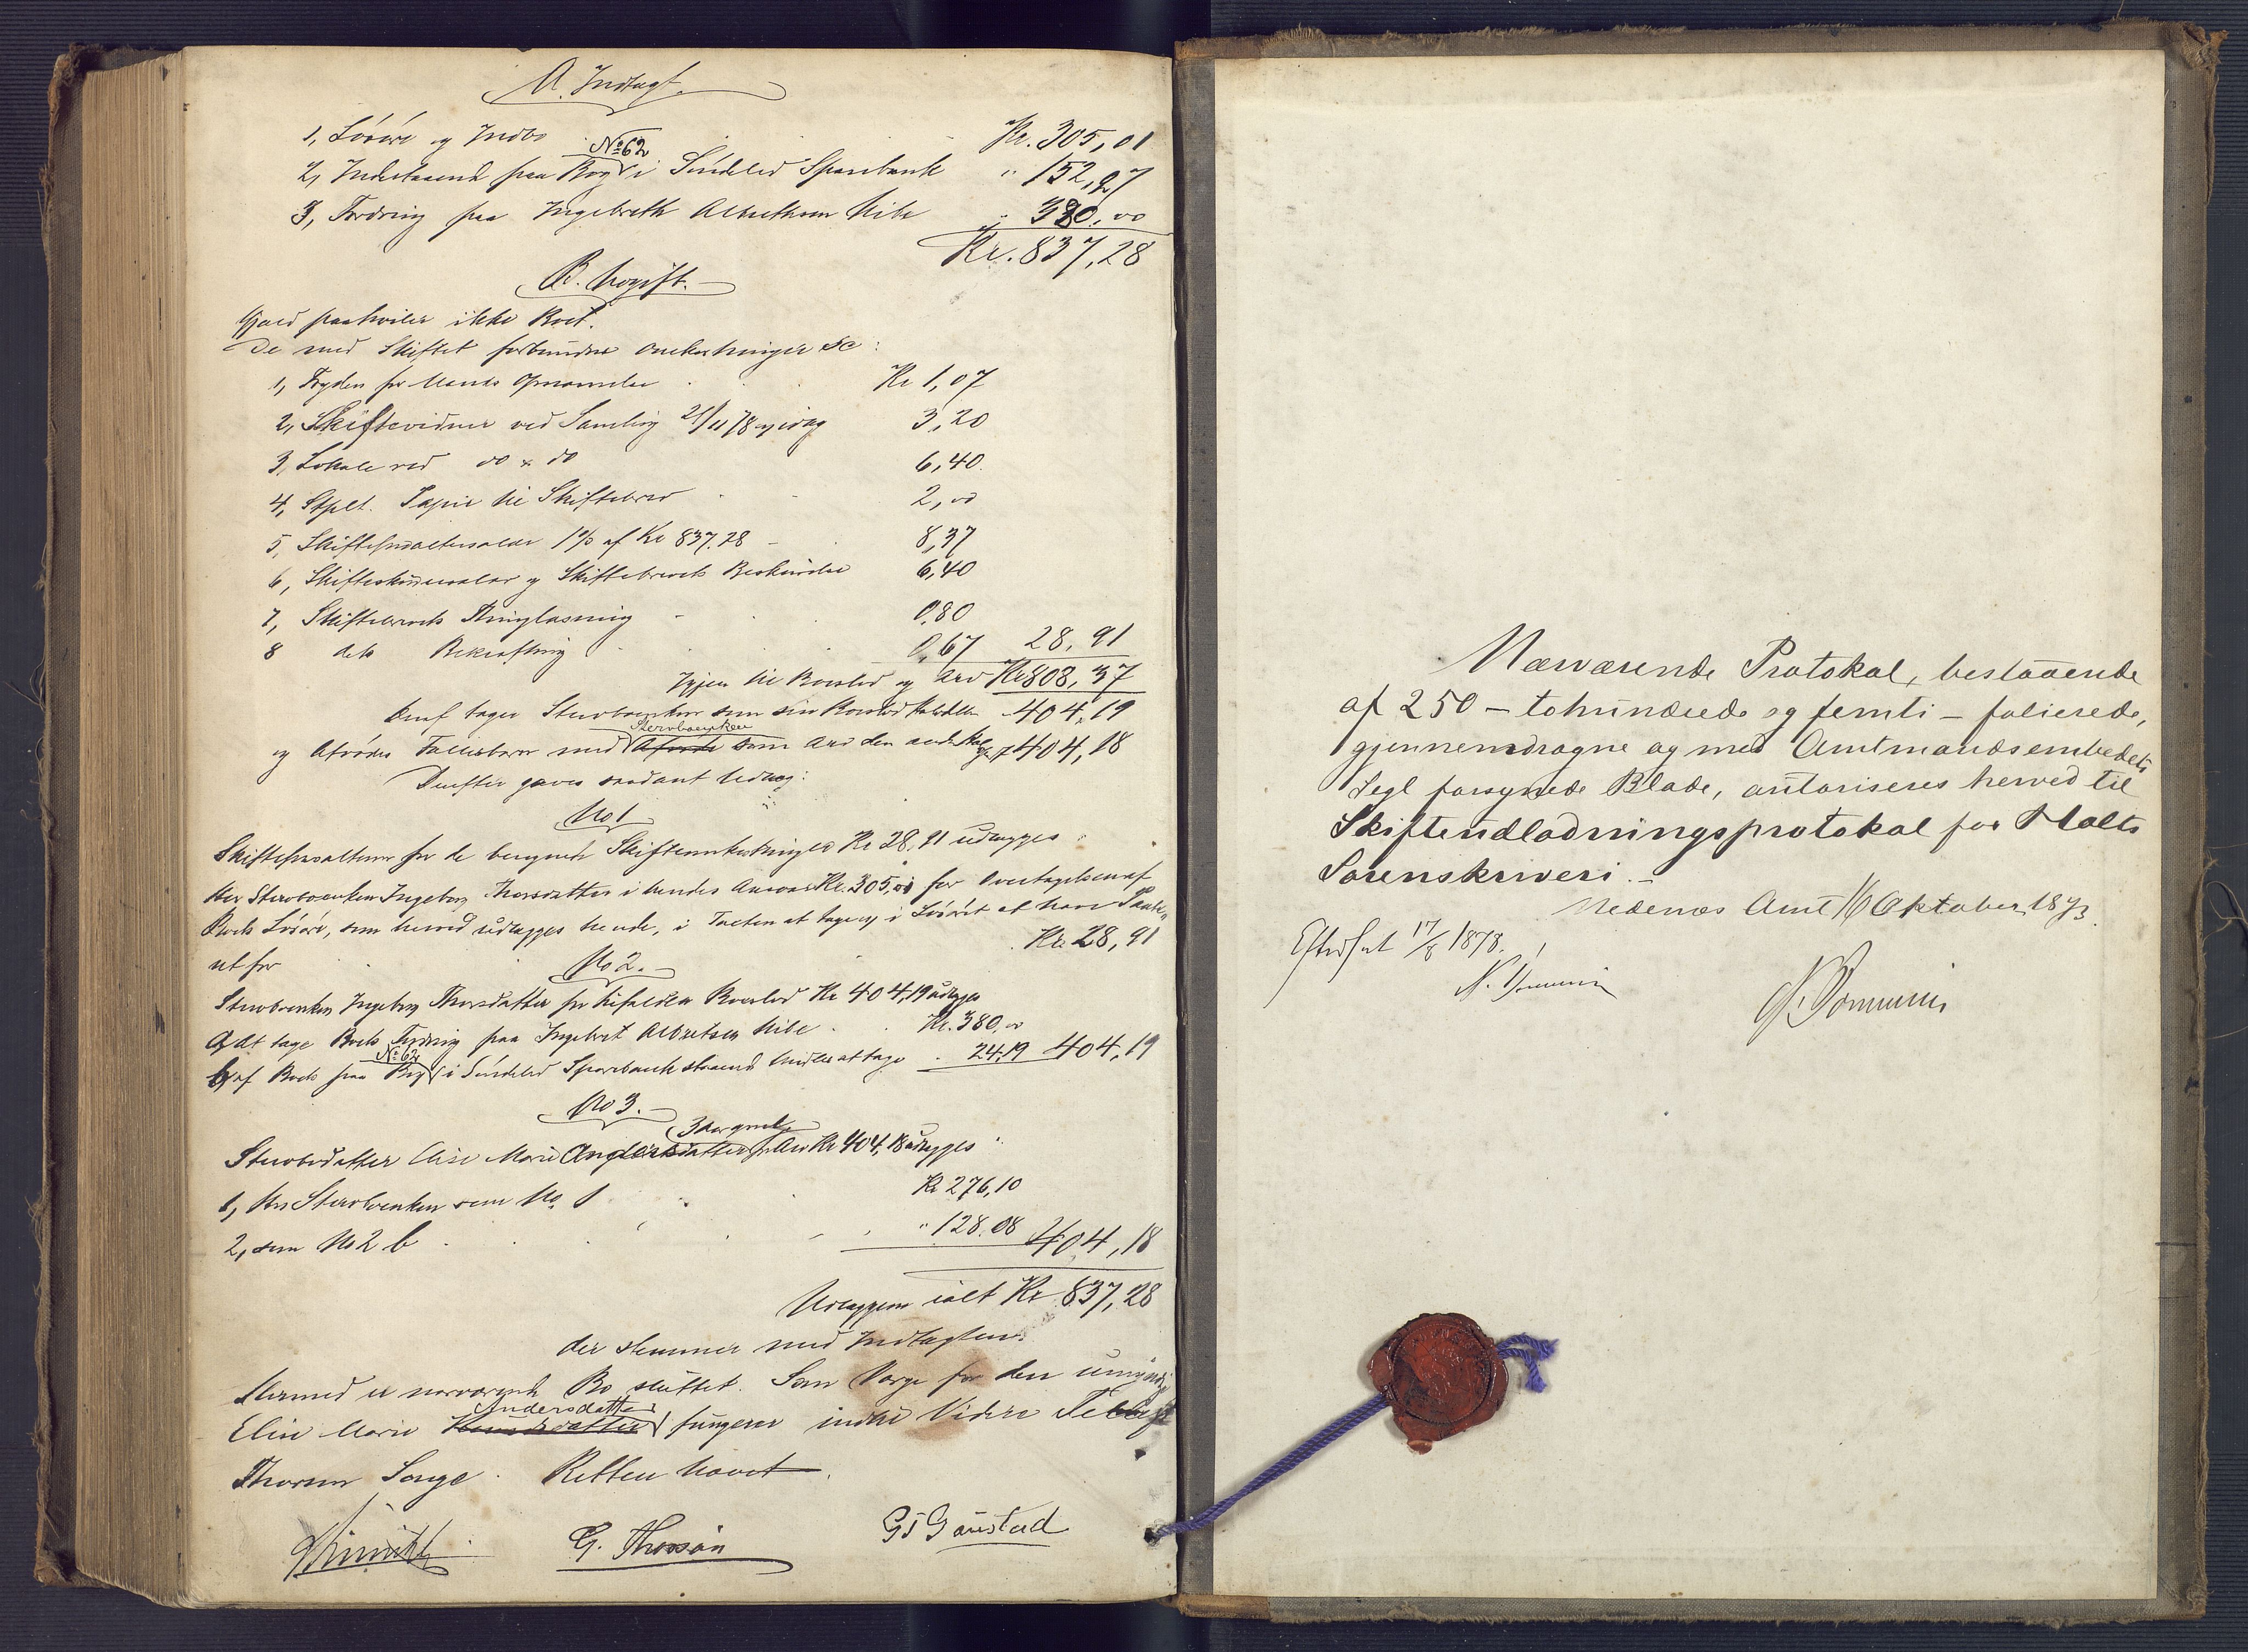 A. Indtægt.
1, Løsøre og Indbo Kr. 305,01
No 62
2, Indestaaende paa Bog i Søndeled Sparebank " 152,27
3, Fordring paa Ingebreth Albrethsen Hibe " 380,00
Kr. 837,28
B. Udgift.
Gjæld paahviler ikke Boet.
De med Skiftet forbundne Omkostninger ere:
1, Fogden for Mænds Opnævnelse Kr 1,07
2, Skiftevidner ved Samling 21/11 78 og idag 3,20
3, Lokale ved do & do 6,40
4, Stplt. Papir til Skiftebrev 2,00
5, Skifteforvaltersalær 1% af Kr 837.28 8,37
6, Skifteskriversalær og Skiftebrevets Beskrivelse 6,40
7, Skiftebrevets Thinglæsning 0,80
8 dets Bekræftning 0,67 28,91
Igjen til Boeslod og Arv Kr 808,37
Deraf tager Sterboenken som sin Boeslod Halvdelen 404,19
Sterboenken
og Afdødes Fællesbarn med som Arv den anden Halvdel 404,18
Derefter gjøres saadant Udlæg:
No 1
Skifteforvalteren for de beregnede Skifteomkostninger Kr 28,91 udlægges
Hos Sterboenken Ingeborg Thorsdatter i hendes Ansvar Kr. 305,01 for Overtagelsen af
Boets Løsøre, som herved udlægges hende, i Tacten at tage og i Løsøret at have Pante
ret for Kr. 28,91
No 2.
Sterboenken Ingeborg Thorsdatter for tilfalden Boeslod Kr 404,19 udlægges
a, At tage Boets Fordring paa Ingebret Albretsen Hibe Kr. 380,00
No 62
b, af Boets paa Bog i Søndeled Sparebank staaende Midler at tage 24,19 404,19
No 3.
Sterbodatter Elise Marie Andersdatter for Arv Kr 404,18 udlægges
1, Hos Sterboenken som No. 1 Kr 276,10
2, som No 2 b " 128.08 404,18
Udlæggene ialt Kr 837,28
der stemmer med Indtægten.
Hermed er nærværende Bo sluttet. Som Værge for den umyndige
Andersdatter
Elise Marie fungerer indtil Videre Tellef
Thorsen Songe. Retten hævet.
G. Thorsøn
G T Gaustad
Nærværende Protokol, bestaaende
af 250 – tohundrede og femti – folierede,
gjennemdragne og med Amtmandsembedets
Segl forsynede Blade, autoriseres herved til
Skifteudlodningsprotokol for Holts
Sorenskriveri. –
Nedenæs Amt 16 Oktober 1873.
Efterset 17/8 1878.